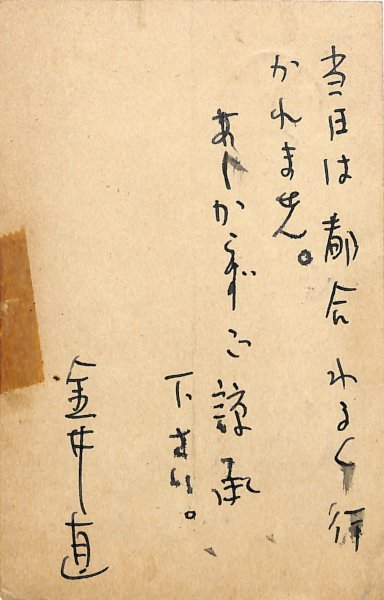 当日は都合わるく行
かれません。
あしからずご諒承
下さい。
金井直